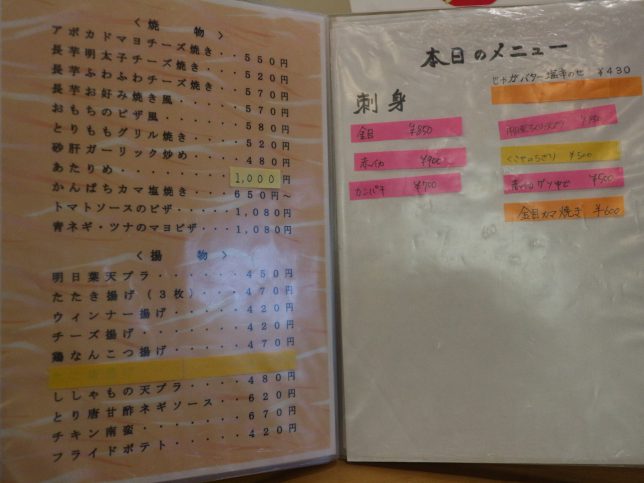 ＜焼　物＞
アボカドマヨチーズ焼き・・550円
長芋明太子チーズ焼き・・・520円
長芋ふわふわチーズ焼き・・570円
長芋お好み焼き風・・・・・570円
おもちのピザ風・・・・・・580円
とりももグリル焼き・・・・520円
砂肝ガーリック炒め・・・・480円
あたりめ・・・・・・・・1,000円
かんぱちカマ塩焼き・・・650円～
トマトソースのピザ・・・・・1,080円
青ネギ・ツナのマヨピザ・・1,080円
＜揚　物＞
明日葉天プラ・・・・・・・450円
たたき揚げ（3枚）・・・・470円
ウィンナー揚げ・・・・・・420円
チーズ揚げ・・・・・・・・420円
鶏なんこつ揚げ・・・・・・470円
ししゃもの天プラ・・・・・480円
とり唐甘酢ネギソース・・・620円
チキン南蛮・・・・・・・・670円
フライドポテト・・・・・・420円
本日のメニュー
刺身
金目 ¥850
赤バカ ¥900
カンパチ ¥700
じゃがバター塩辛のせ ¥430
¥500
¥500
金目カマ焼き ¥600